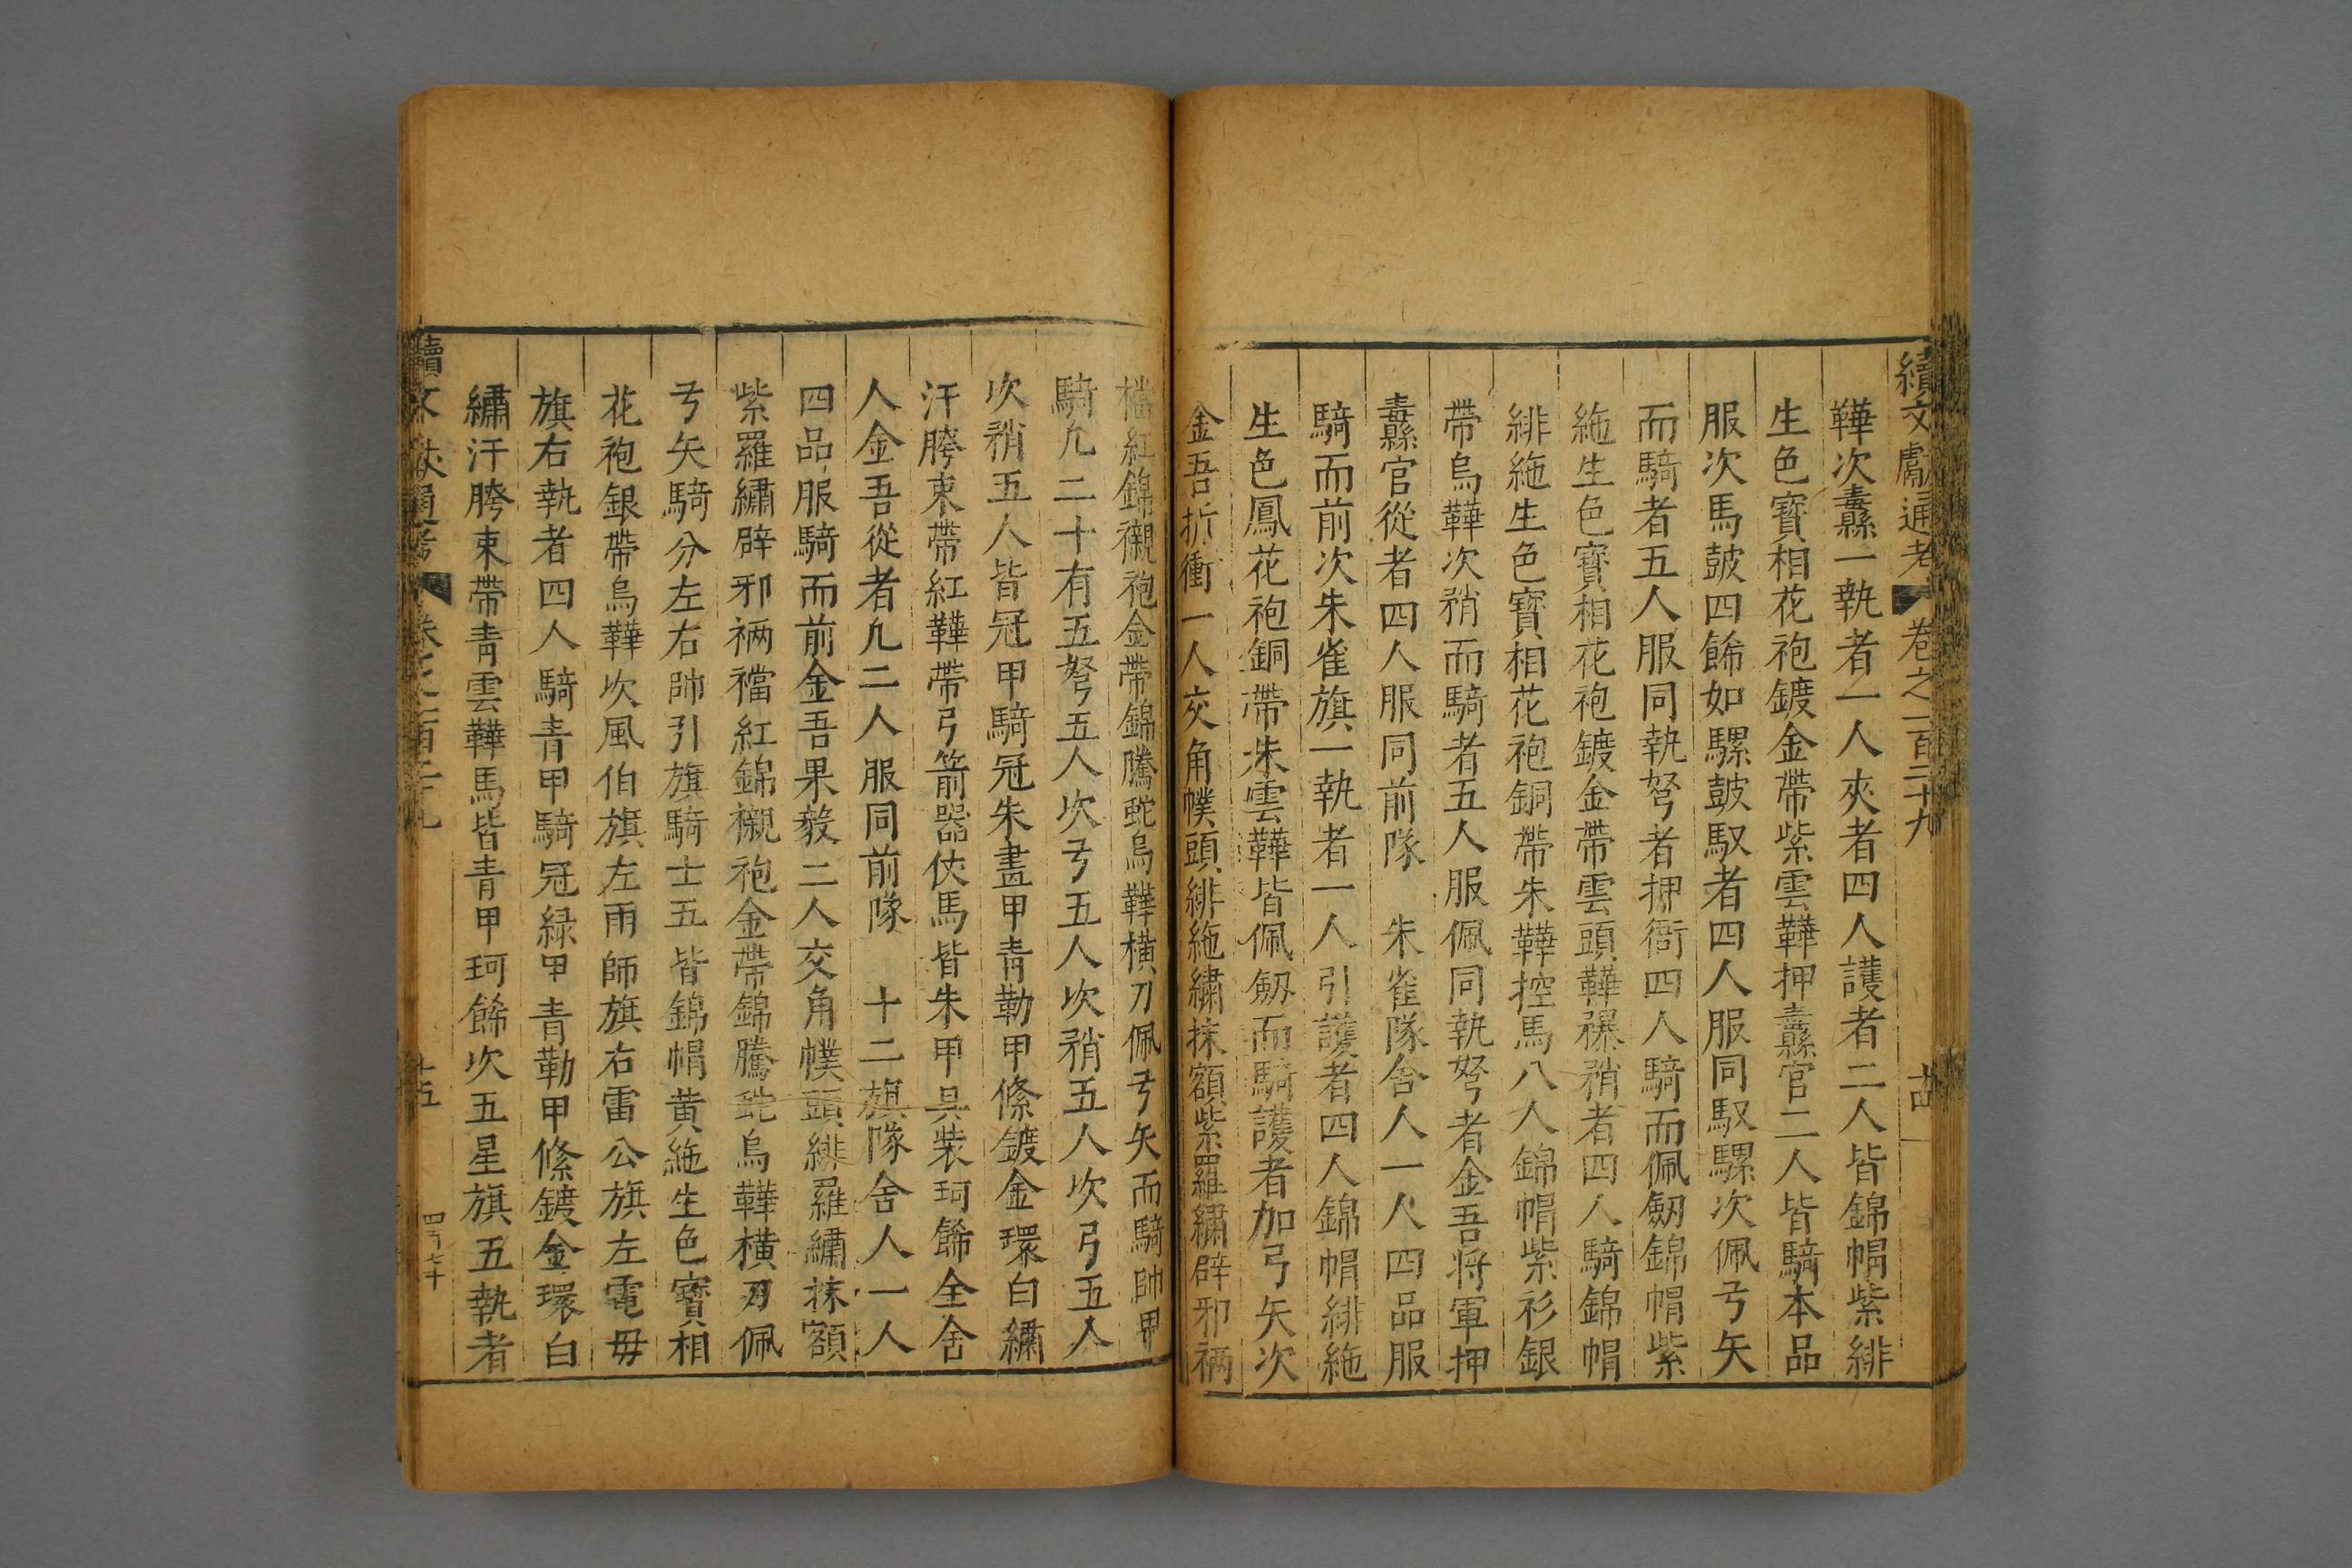 續文獻通考 卷之一百二十九 十四
鞾次纛一執者一人夾者四人護者二人皆錦帽紫緋
生色寶相花袍鍍金帶紫雲鞾押纛官二人皆騎本品
服次馬皷四餙如騾皷馭者四人服同馭騾次佩弓矢
而騎者五人服同執弩者押衙四人騎而佩劒錦帽紫
絁生色寶相花袍鍍金帶雲頭鞾犦矟者四人騎錦帽
緋絁生色寶相花袍銅帶朱鞾控馬八人錦帽紫衫銀
帶烏鞾次矟而騎者五人服佩同執弩者金吾将軍押
纛官從者四人服同前隊 朱雀隊舍人一人四品服
騎而前次朱雀旗一執者一人引護者四人錦帽緋絁
生色鳳花袍銅帶朱雲鞾皆佩劒而騎護者加弓矢次
金吾折衝一人交角幞頭緋絁繡抹額紫羅繡辟邪裲
襠紅錦襯袍金帶錦騰蛇烏鞾橫刀佩弓矢而騎帥甲
騎凢二十有五弩五人次弓五人次矟五人次弓五人
次矟五人皆冠甲騎冠朱畫甲青勒甲絛鍍金環白繡
汗胯束帶紅鞾帶弓箭器仗馬皆朱甲具装珂餙全舍
人金吾從者凢二人服同前隊 十二旗隊舍人一人
四品服騎而前金吾果毅二人交角幞頭緋羅繡抹額
紫羅繡辟邪裲襠紅錦襯袍金帶錦騰蛇烏鞾橫刀佩
弓矢騎分左右帥引旗騎士五皆錦帽黄絁生色寶相
花袍銀帶烏鞾次風伯旗左雨師旗右雷公旗左電母
旗右執者四人騎青甲騎冠緑甲青勒甲絛鍍金環白
繡汗胯束帶青雲鞾馬皆青甲珂餙次五星旗五執者
續文獻通考 卷之一百二十九 十五 四百七十